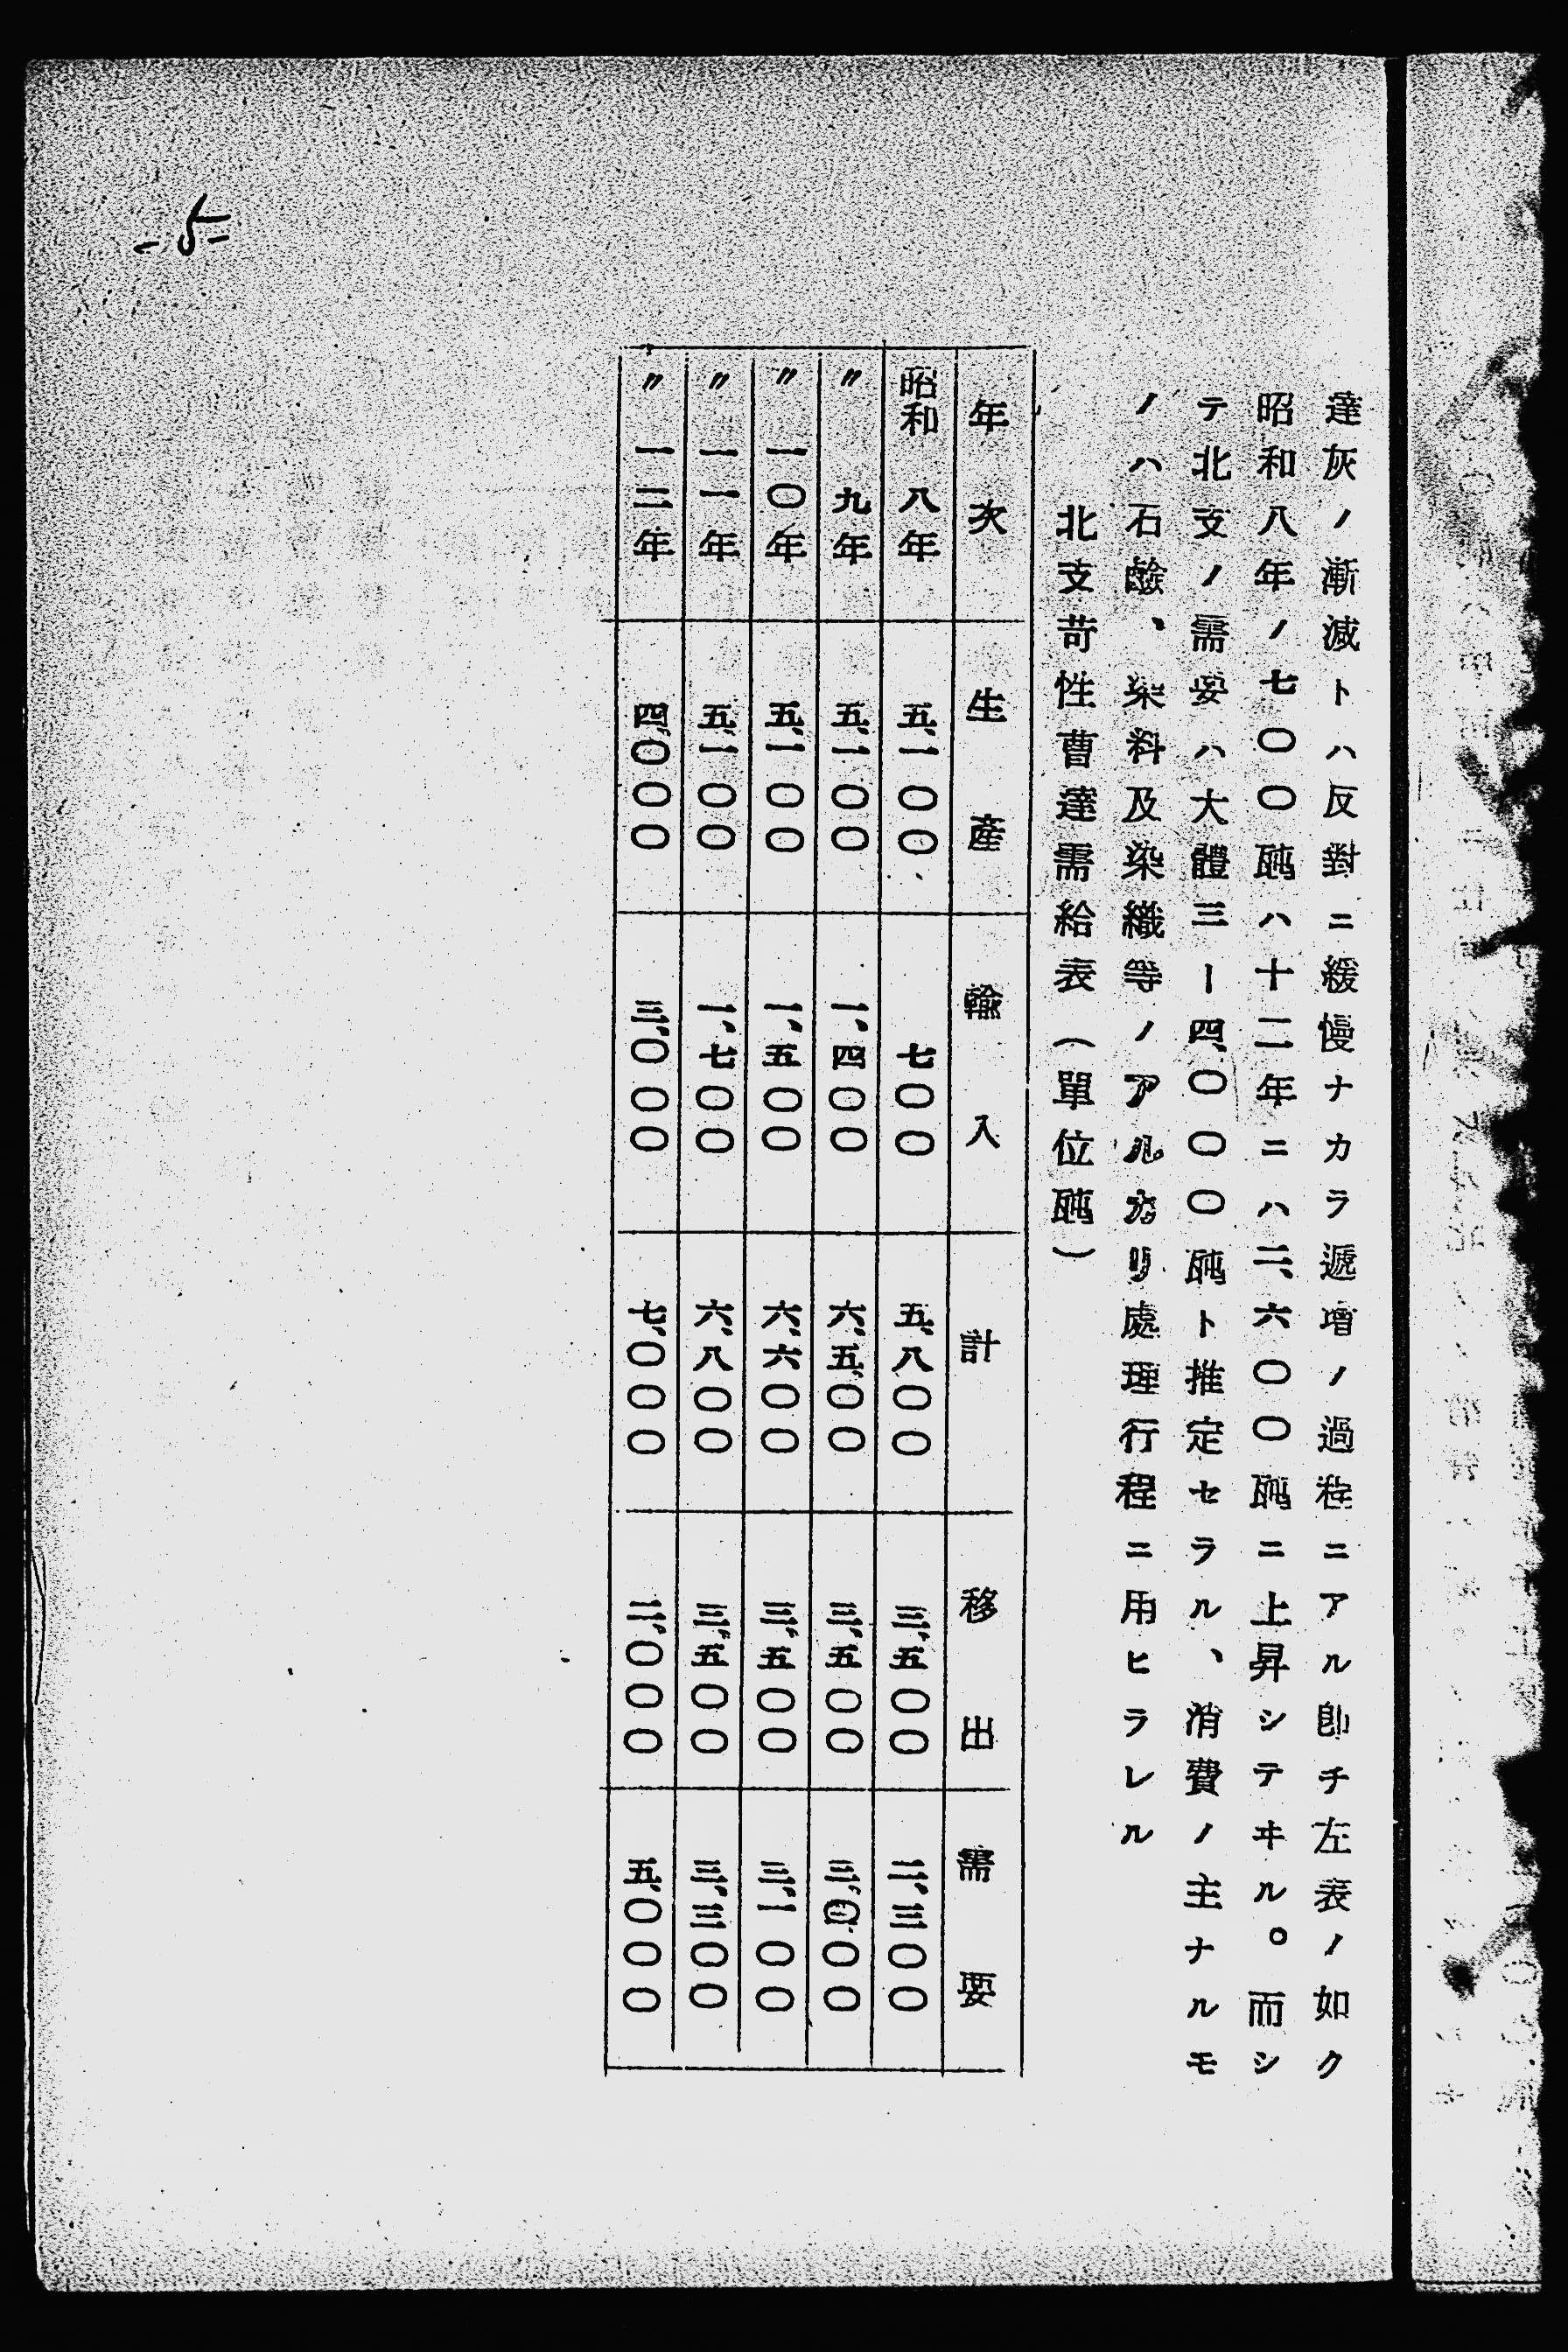 達灰ノ漸減トハ反對ニ緩慢ナカラ遞増ノ過程ニアル卽チ左表ノ如ク
昭和八年ノ七〇〇瓲ハ十二年ニハ二、六〇〇瓲ニ上昇シテヰル。而シ
テ北支ノ需要ハ大體三ー四、〇〇〇瓲ト推定セラル、消費ノ主ナルモ
ノハ石鹼、染料及染織等ノアルカリ處理行程ニ用ヒラレル
北支苛性曹達需給表(單位瓲)
年次 生產 輸入 計 移出 需要
昭和八年 五、一〇〇 七〇〇 五、八〇〇 三、五〇〇 二、三〇〇
〃九年 五、一〇〇 一、四〇〇 六、五〇〇 三、五〇〇 三、〇〇〇
〃一〇年 五、一〇〇 一、五〇〇 六、六〇〇 三、五〇〇 三、一〇〇
〃一一年 五、一〇〇 一、七〇〇 六、八〇〇 三、五〇〇 三、三〇〇
〃一二年 四、〇〇〇 三、〇〇〇 七、〇〇〇 二、〇〇〇 五、〇〇〇
-5-